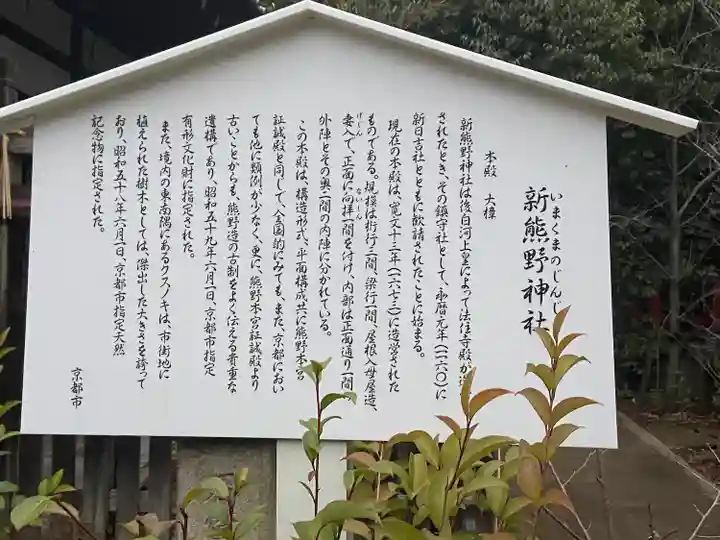 いまくまのじんじ
新熊野神社
本殿　大樟
新熊野神社は後白河上皇によって法住寺殿が造
されたとき、その鎮守社として、永暦元年(一一六〇)に
新日吉社とともに歓請されたことに始まる。
現在の本殿は、寛文十三年(一六七三)に造営された
ものである。規模は桁行三間、梁行一間、屋根入母屋造、
妻入で、正面に向拝一間を付け、内部は正面通り一間
げじん　ないじん
外陣とその奥二間の内陣に分かれている。
この本殿は、構造形式、平面構成共に熊野本宮
証誠殿と同じで、全国的にみても、また、京都におい
ても他に類例が少なく、更に、熊野本宮証誠殿より
古いことからも、熊野造の古制をよく伝える貴重な
遺構であり、昭和五十九年六月一日、京都市指定
有形文化財に指定された。
また、境内の東南隅にあるクスノキは、市街地に
植えられた樹木としては、傑出した大きさを誇って
おり、昭和五十八年六月一日、京都市指定天然
記念物に指定された。
京都市